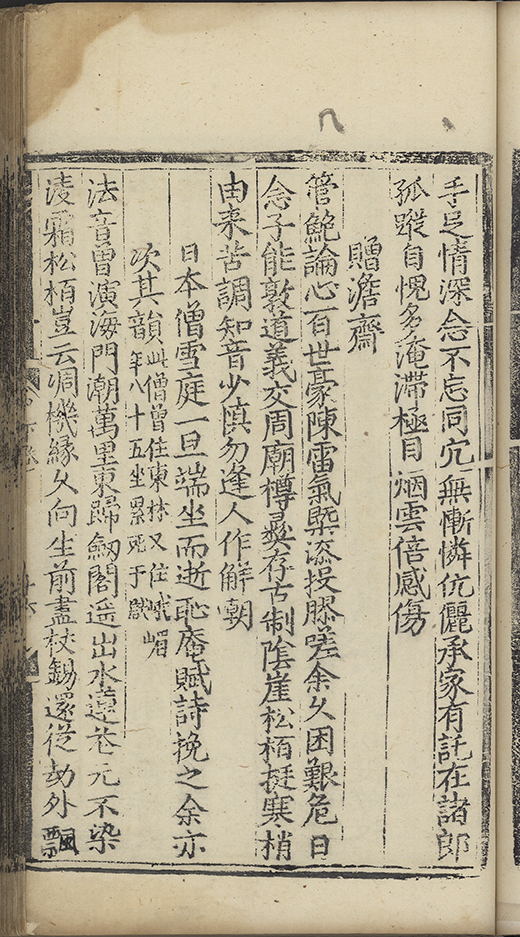 手足情深念不忘同穴無慚憐伉儷承家有託在諸郎
孤蹤自愧多淹滯極目烟雲倍感傷
贈澹齋
管鮑論心百世豪陳雷氣槩漆投膠嗟余久困艱危日
念子能敦道義交周廟樽彝存古制陰崖松栢挺寒梢
由来苦調知音少慎勿逢人作解嘲
日本僧雪庭一旦端坐而逝耻庵賦詩挽之余亦
次其韻此僧曾住東林又住峨嵋
年八十五坐累死于獄
法音曾演海門潮萬里東歸劒閣遥出水蓮花元不染
淩霜松栢豈云凋機緣久向生前盡杖錫還從劫外飄